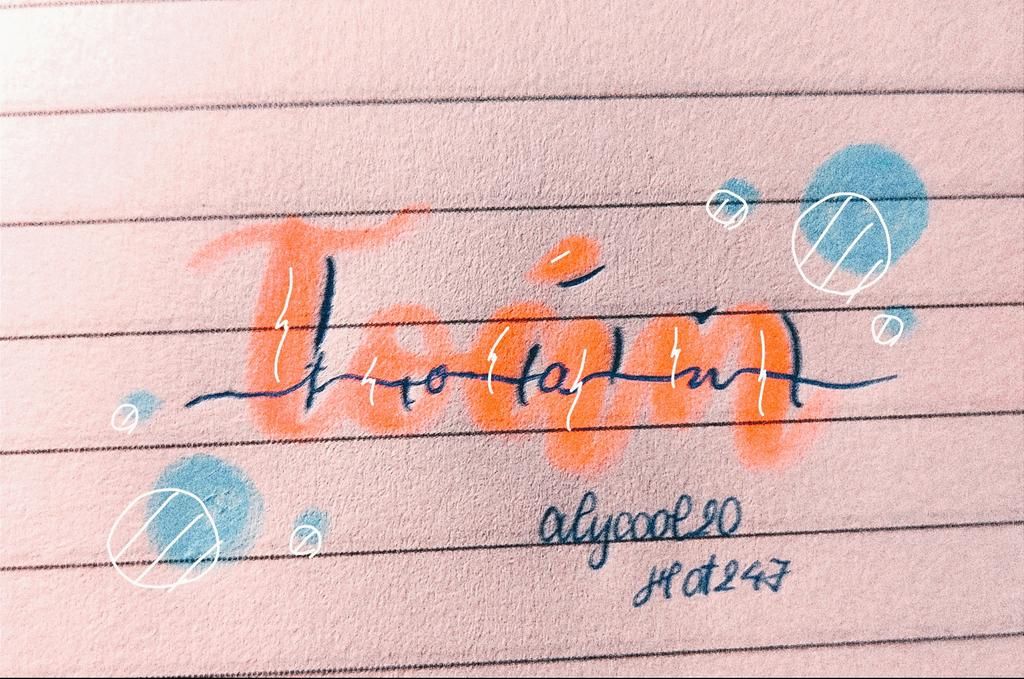 Toán
alycool20
Hdt247